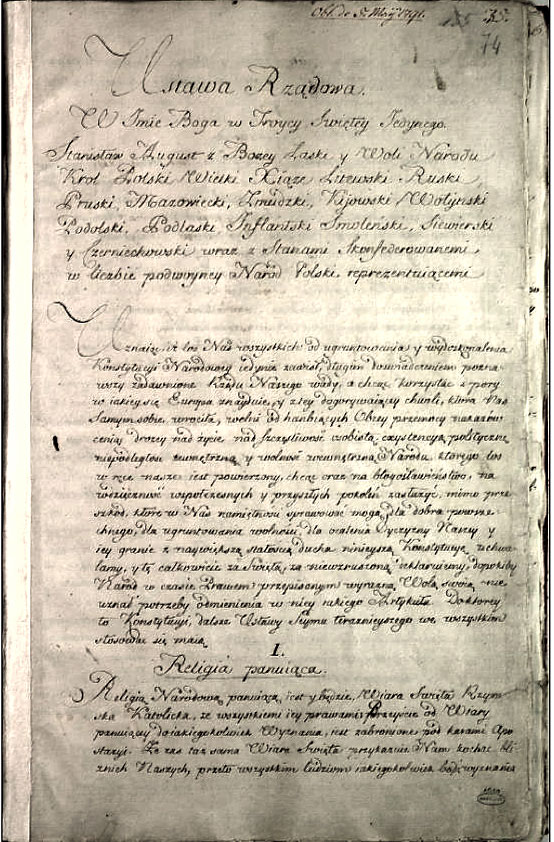 Obl. de 5. Maij 1791.
135 35.
74
Ustawa Rządowa.
W Imie Boga w Troycy Swiętey Jedynego.
Stanisław August z Bozey Łaski y Woli Narodu
Krol Polski Wielki Xiąze Litewski Ruski
Pruski, Mazowiecki, Zmudzki, Kijowski Wołynski
Podolski, Podlaski Inflantski Smoleński, Siewierski
y Czerniechowski wraz z Stanami Skonfederowanemi
w liczbie podwoyney Naród Polski reprezentuiącemi
Uznaiąc, iż los Nas wszystkich od ugruntowania y wydoskonalenia
Konstytucyi Narodowey iedynie zawisł, długim doswiadczeniem pozna-
wszy zadawnione Rządu Naszego wady, a chcąc korzystać z pory
w iakiey się Europa znayduie, y z tey dogorywaiącey chwili, która Nas
samym sobie wrociła, wolni od hanbiących Obcey przemocy nakazów
ceniąc drozey nad zycie, nad szczęsliwosc osobistą exystencyą polityczną
niepodległosc zewnętrzną y wolność wewnętrzną Narodu, ktorego los
w ręce nasze iest powierzony, chcąc oraz na błogosławieństwo, na
wdzięczność współczesnych y przyszłych pokoleń zasłuzyc, mimo prze-
szkód, które w Nas namiętnosci sprawować mogą, dla dobra powsze-
chnego, dla ugruntowania wolności, dla ocalenia Oyczyzny Naszey y
iey granic z naywiększą stałoscią ducha ninieyszą Konstytucyę uchwa-
lamy, y tę całkowicie za świętą, za niewzruszoną deklaruiemy, dopokiby
Narod w czasie Prawem przepisanym wyrazną Wolą swoią nie
uznał potrzeby odmienienia w niey iakiego Artykułu. Do ktorey
to Konstytucyi, dalsze Ustawy Seymu teraznieyszego we wszystkim
stosować się maią
I.
Religia panuiąca.
Religią Narodową panuiącą iest y będzie Wiara Swięta Rzym-
ska Katolicka, ze wszystkiemi iey prawami; Przeyscie od Wiary
panuiącey do iakiegokolwiek Wyznania, iest zabronione pod karami Apo-
stazyi. Ze zas taz sama Wiara Święta przykazuie Nam kochać bli-
znich Naszych, przeto wszystkim ludziom iakiegokolwiek bądź wyznania